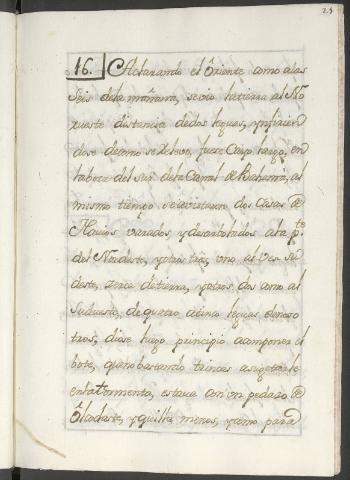 23
16. Aclarando el Oriente como alas
Seis dela mañana, sevio latierra al No
rueste distancia dedos leguas, ynfirien
dose de como sedexava, fuese Cayo largo, en
laboca del Sur dela Canal de Bahama, al
mismo tiempo seavistaron dos Casas de
Navios varados, y desarbolados ala p.te
del Nordeste, yotra tras, uno al Ues Su
deste, zerca detierra, yotros dos como al
Sudueste, de quatro acinco leguas denoso
tros, diose luego principio acomponer el
bote, queno bastando trincas asugetarle
enlatormenta, estava con un pedazo de
Codaste, yquilla menos, ycomo para